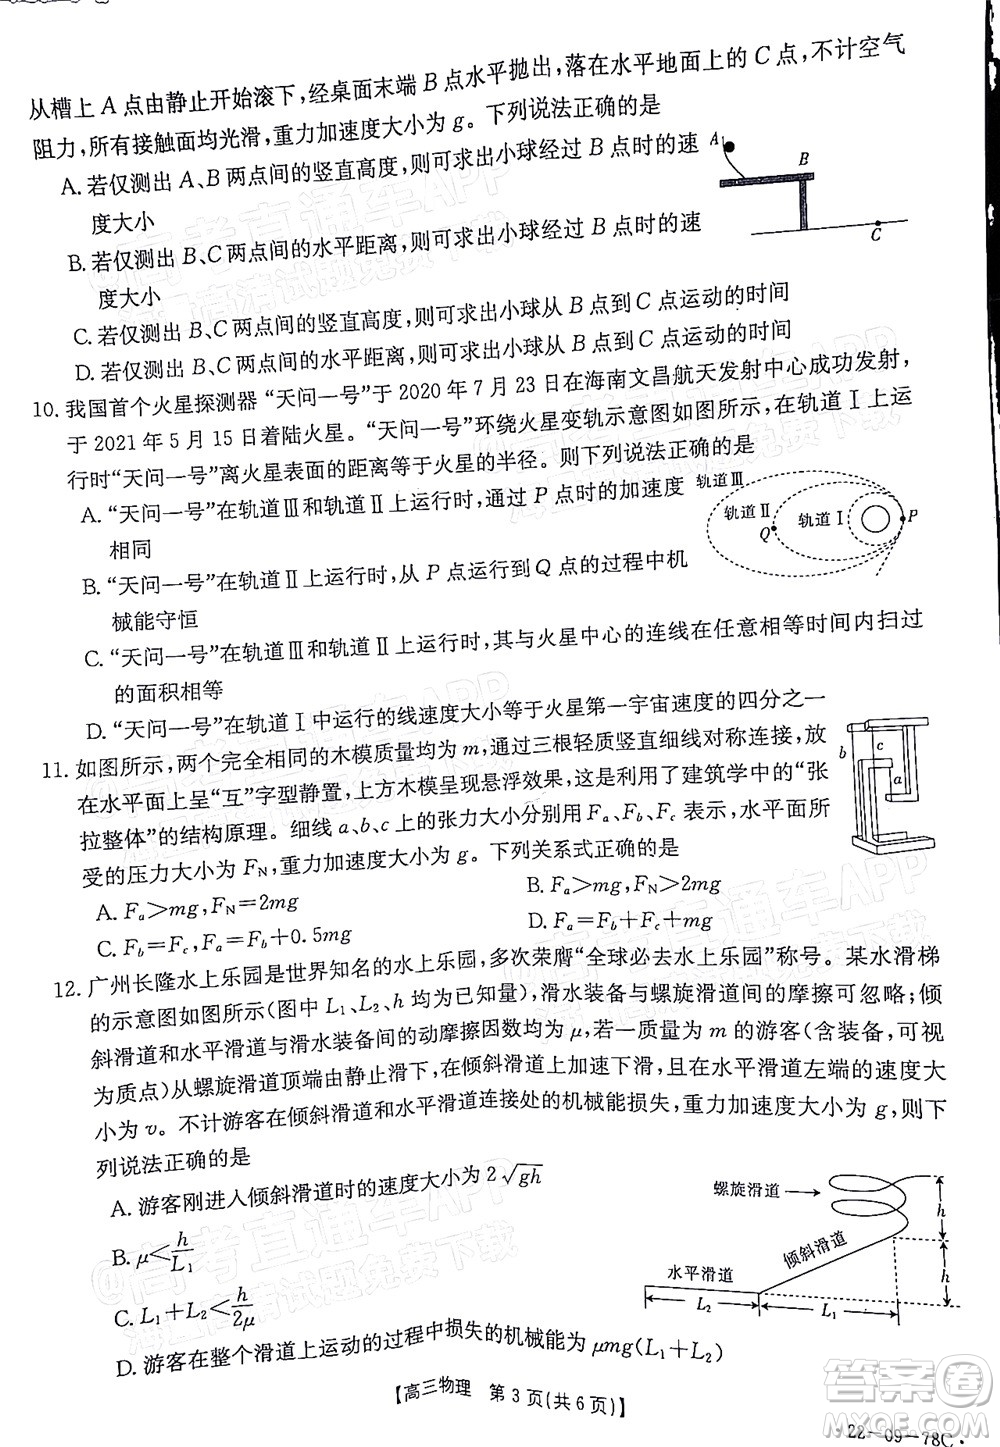 从槽上 A 点由静止开始滚下,经桌面末端 B 点水平抛出,落在水平地面上的 C 点,不计空气
阻力,所有接触面均光滑,重力加速度大小为 g。下列说法正确的是
A. 若仅测出 A、B 两点间的竖直高度,则可求出小球经过 B 点时的速
度大小
B. 若仅测出 B、C 两点间的水平距离,则可求出小球经过 B 点时的速
度大小
C. 若仅测出 B、C 两点间的竖直高度,则可求出小球从 B 点到 C 点运动的时间
D. 若仅测出 B、C 两点间的水平距离,则可求出小球从 B 点到 C 点运动的时间
A
B
C
10. 我国首个火星探测器“天问一号”于 2020 年 7 月 23 日在海南文昌航天发射中心成功发射,
于 2021 年 5 月 15 日着陆火星。“天问一号”环绕火星变轨示意图如图所示,在轨道Ⅰ上运
行时“天问一号”离火星表面的距离等于火星的半径。则下列说法正确的是
A. “天问一号”在轨道Ⅲ和轨道Ⅱ上运行时,通过 P 点时的加速度
相同
B. “天问一号”在轨道Ⅱ上运行时,从 P 点运行到 Q 点的过程中机
械能守恒
C. “天问一号”在轨道Ⅲ和轨道Ⅱ上运行时,其与火星中心的连线在任意相等时间内扫过
的面积相等
D. “天问一号”在轨道Ⅰ中运行的线速度大小等于火星第一宇宙速度的四分之一
轨道Ⅲ
轨道Ⅱ
Q
轨道Ⅰ
P
11. 如图所示,两个完全相同的木模质量均为 m,通过三根轻质竖直细线对称连接,放
在水平面上呈“互”字型静置,上方木模呈现悬浮效果,这是利用了建筑学中的“张
拉整体”的结构原理。细线 a、b、c 上的张力大小分别用 Fa、Fb、Fc 表示,水平面所
受的压力大小为 FN,重力加速度大小为 g。下列关系式正确的是
A. Fa>mg,FN=2mg
B. Fa=mg,FN>2mg
C. Fb=Fc,Fa=Fb+0.5mg
D. Fa=Fb+Fc+mg
b
c
a
12. 广州长隆水上乐园是世界知名的水上乐园,多次荣膺“全球必去水上乐园”称号。某水滑梯
的示意图如图所示(图中 L₁、L₂、h 均为已知量),滑水装备与螺旋滑道间的摩擦可忽略;倾
斜滑道和水平滑道与滑水装备间的动摩擦因数均为 μ,若一质量为 m 的游客(含装备,可视
为质点)从螺旋滑道顶端由静止滑下,在倾斜滑道上加速下滑,到水平滑道左端的速度大
小为 v。不计游客在倾斜滑道和水平滑道连接处的机械能损失,重力加速度大小为 g,则下
列说法正确的是
A. 游客刚进入倾斜滑道时的速度大小为 2√gh
B. μ<h/L₁
C. L₁+L₂<h/2μ
D. 游客在整个滑道上运动的过程中损失的机械能为 μmg(L₁+L₂)
螺旋滑道
倾斜滑道
水平滑道
L₂
L₁
h
h
【高三物理 第 3 页(共 6 页)】
·22-09-78C·
@高考直通车APP
海量高清试题免费下载
答案圈
MXQE.COM